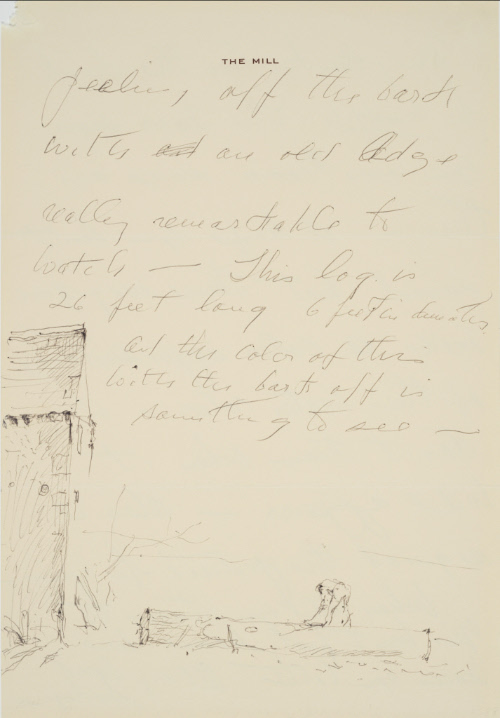 THE MILL
peeling off the bark
with an old Adge
really remarkable to
watch — This log is
26 feet long 6 feet in diameter
and the color of this
with the bark off is
something to see —